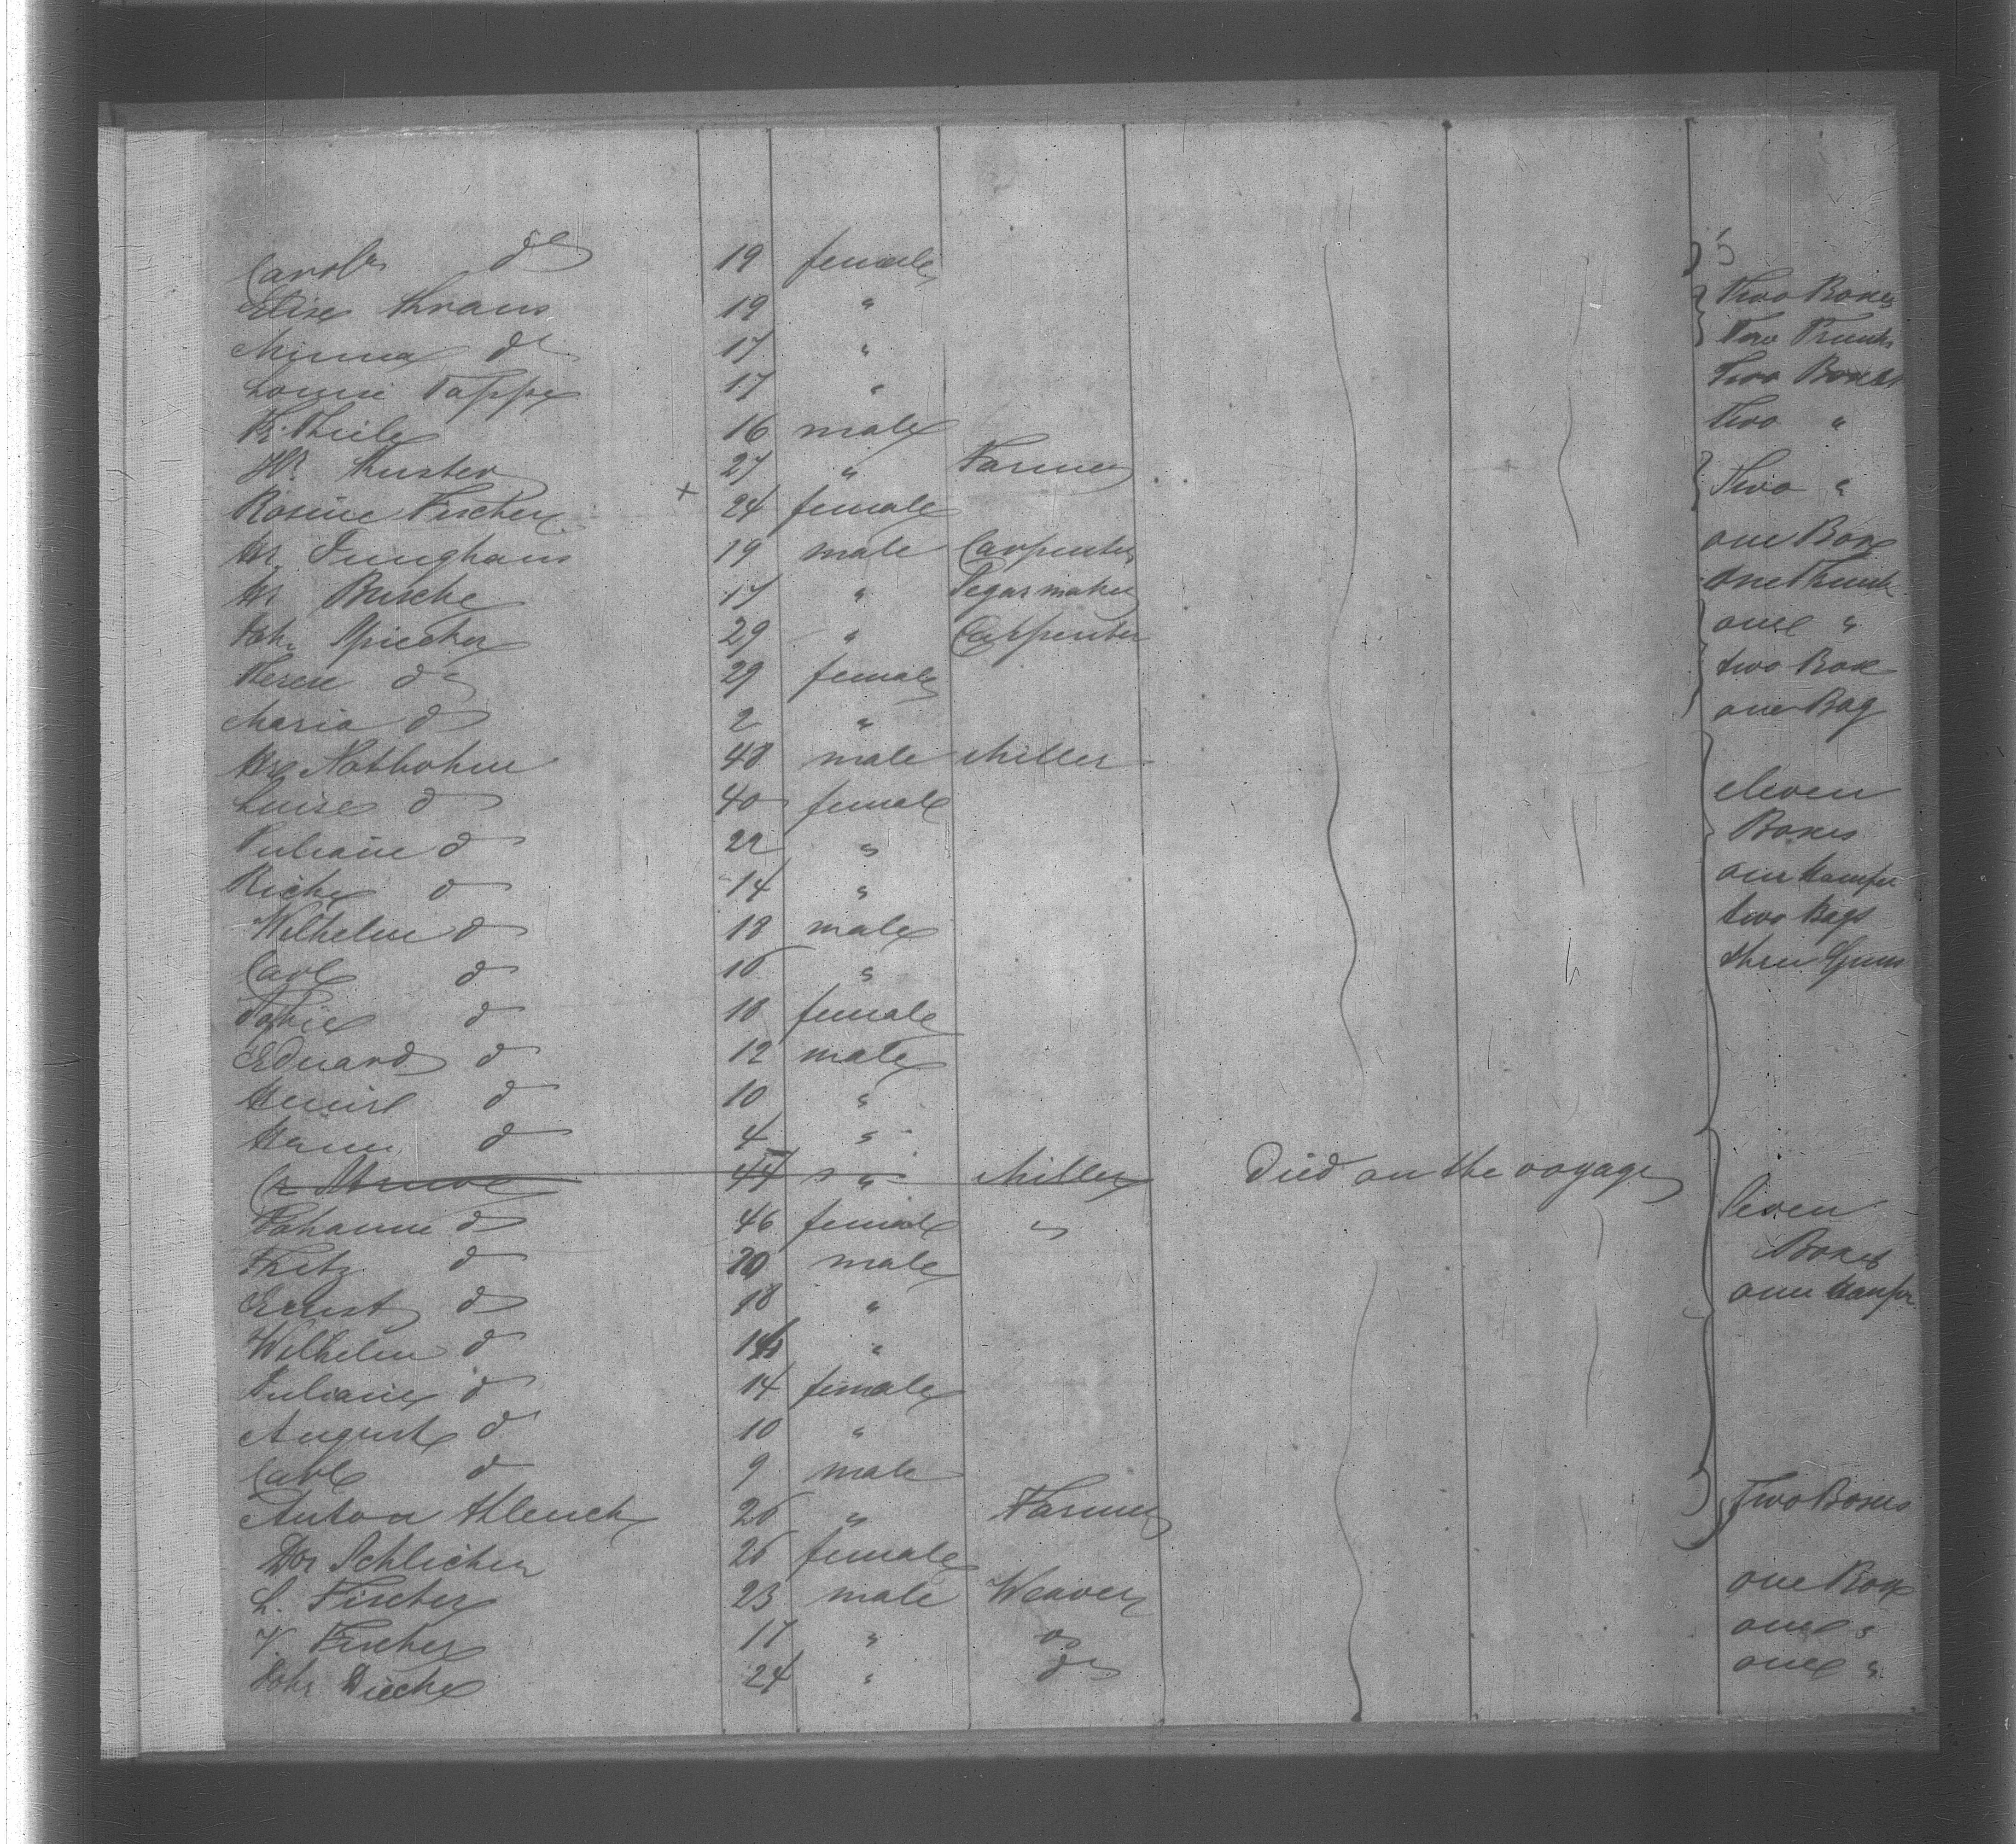 Carol do 19 female
Elise Kraus 19 " Two Boxes
Minna do 17 " Two Trunks
Louise Tappe 17 " Two Boxes
Fr. Thiele 16 male Two "
Wr. Kuster 27 " Farmer
Rosine Fischer + 24 female Two "
Hr. Junghans 19 male Carpenter one Box
Hr Busche 17 " Segarmaker one Trunk
Joh. Spiecker 29 " Carpenter one "
Therese do 29 female two Box
Maria do 2 " one Bag
Hr. Nothbohm 48 male Miller
Luise do 40 female eleven
Juliane do 22 " Boxes
Ricke do 14 " one Hamper
Wilhelm do 18 male two Bags
Carl do 16 " three Guns
Sophie do 18 female
Eduard do 12 male
do 10 "
Herm. do 4 "
44 " " Miller Died on the voyage
Johanne do 46 female " Seven
Fritz do 20 male Boxes
Ernst do 18 " one Hamper
Wilhelm do "
Juliane do 14 female
August do 10 "
Carl do 9 male
Anton 26 " Farmer Two Boxes
Dor Schlicher 26 female
L. Fischer 23 male Weaver one Box
F. Fischer 17 " do one "
Joh. Diecke 24 " do one "